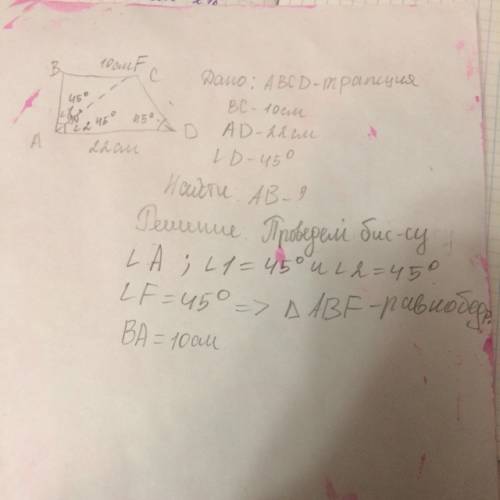 B 10см F C
45°
1
A 2 45° 45° D
22см
Дано: ABCD-трапеция
BC-10см
AD-22см
∠D-45°
Найти: AB-?
Решение: Проведем бис-су
∠A ; ∠1=45° и ∠2=45°
∠F=45° => △ABF-равнобедр.
BA=10см